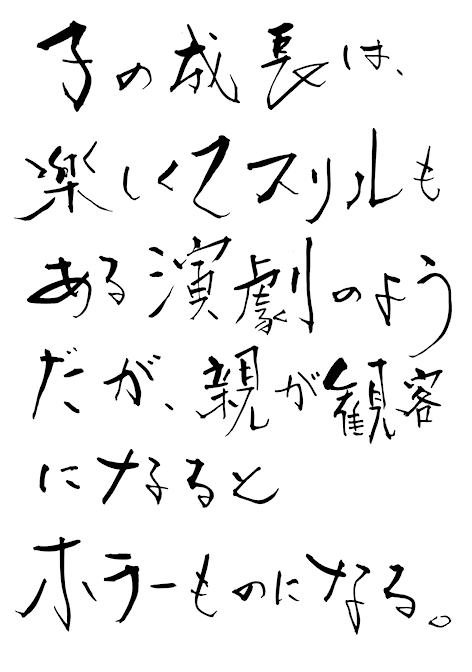 子の成長は、
楽しくてスリルも
ある演劇のよう
だが、親が観客
になると
ホラーものになる。